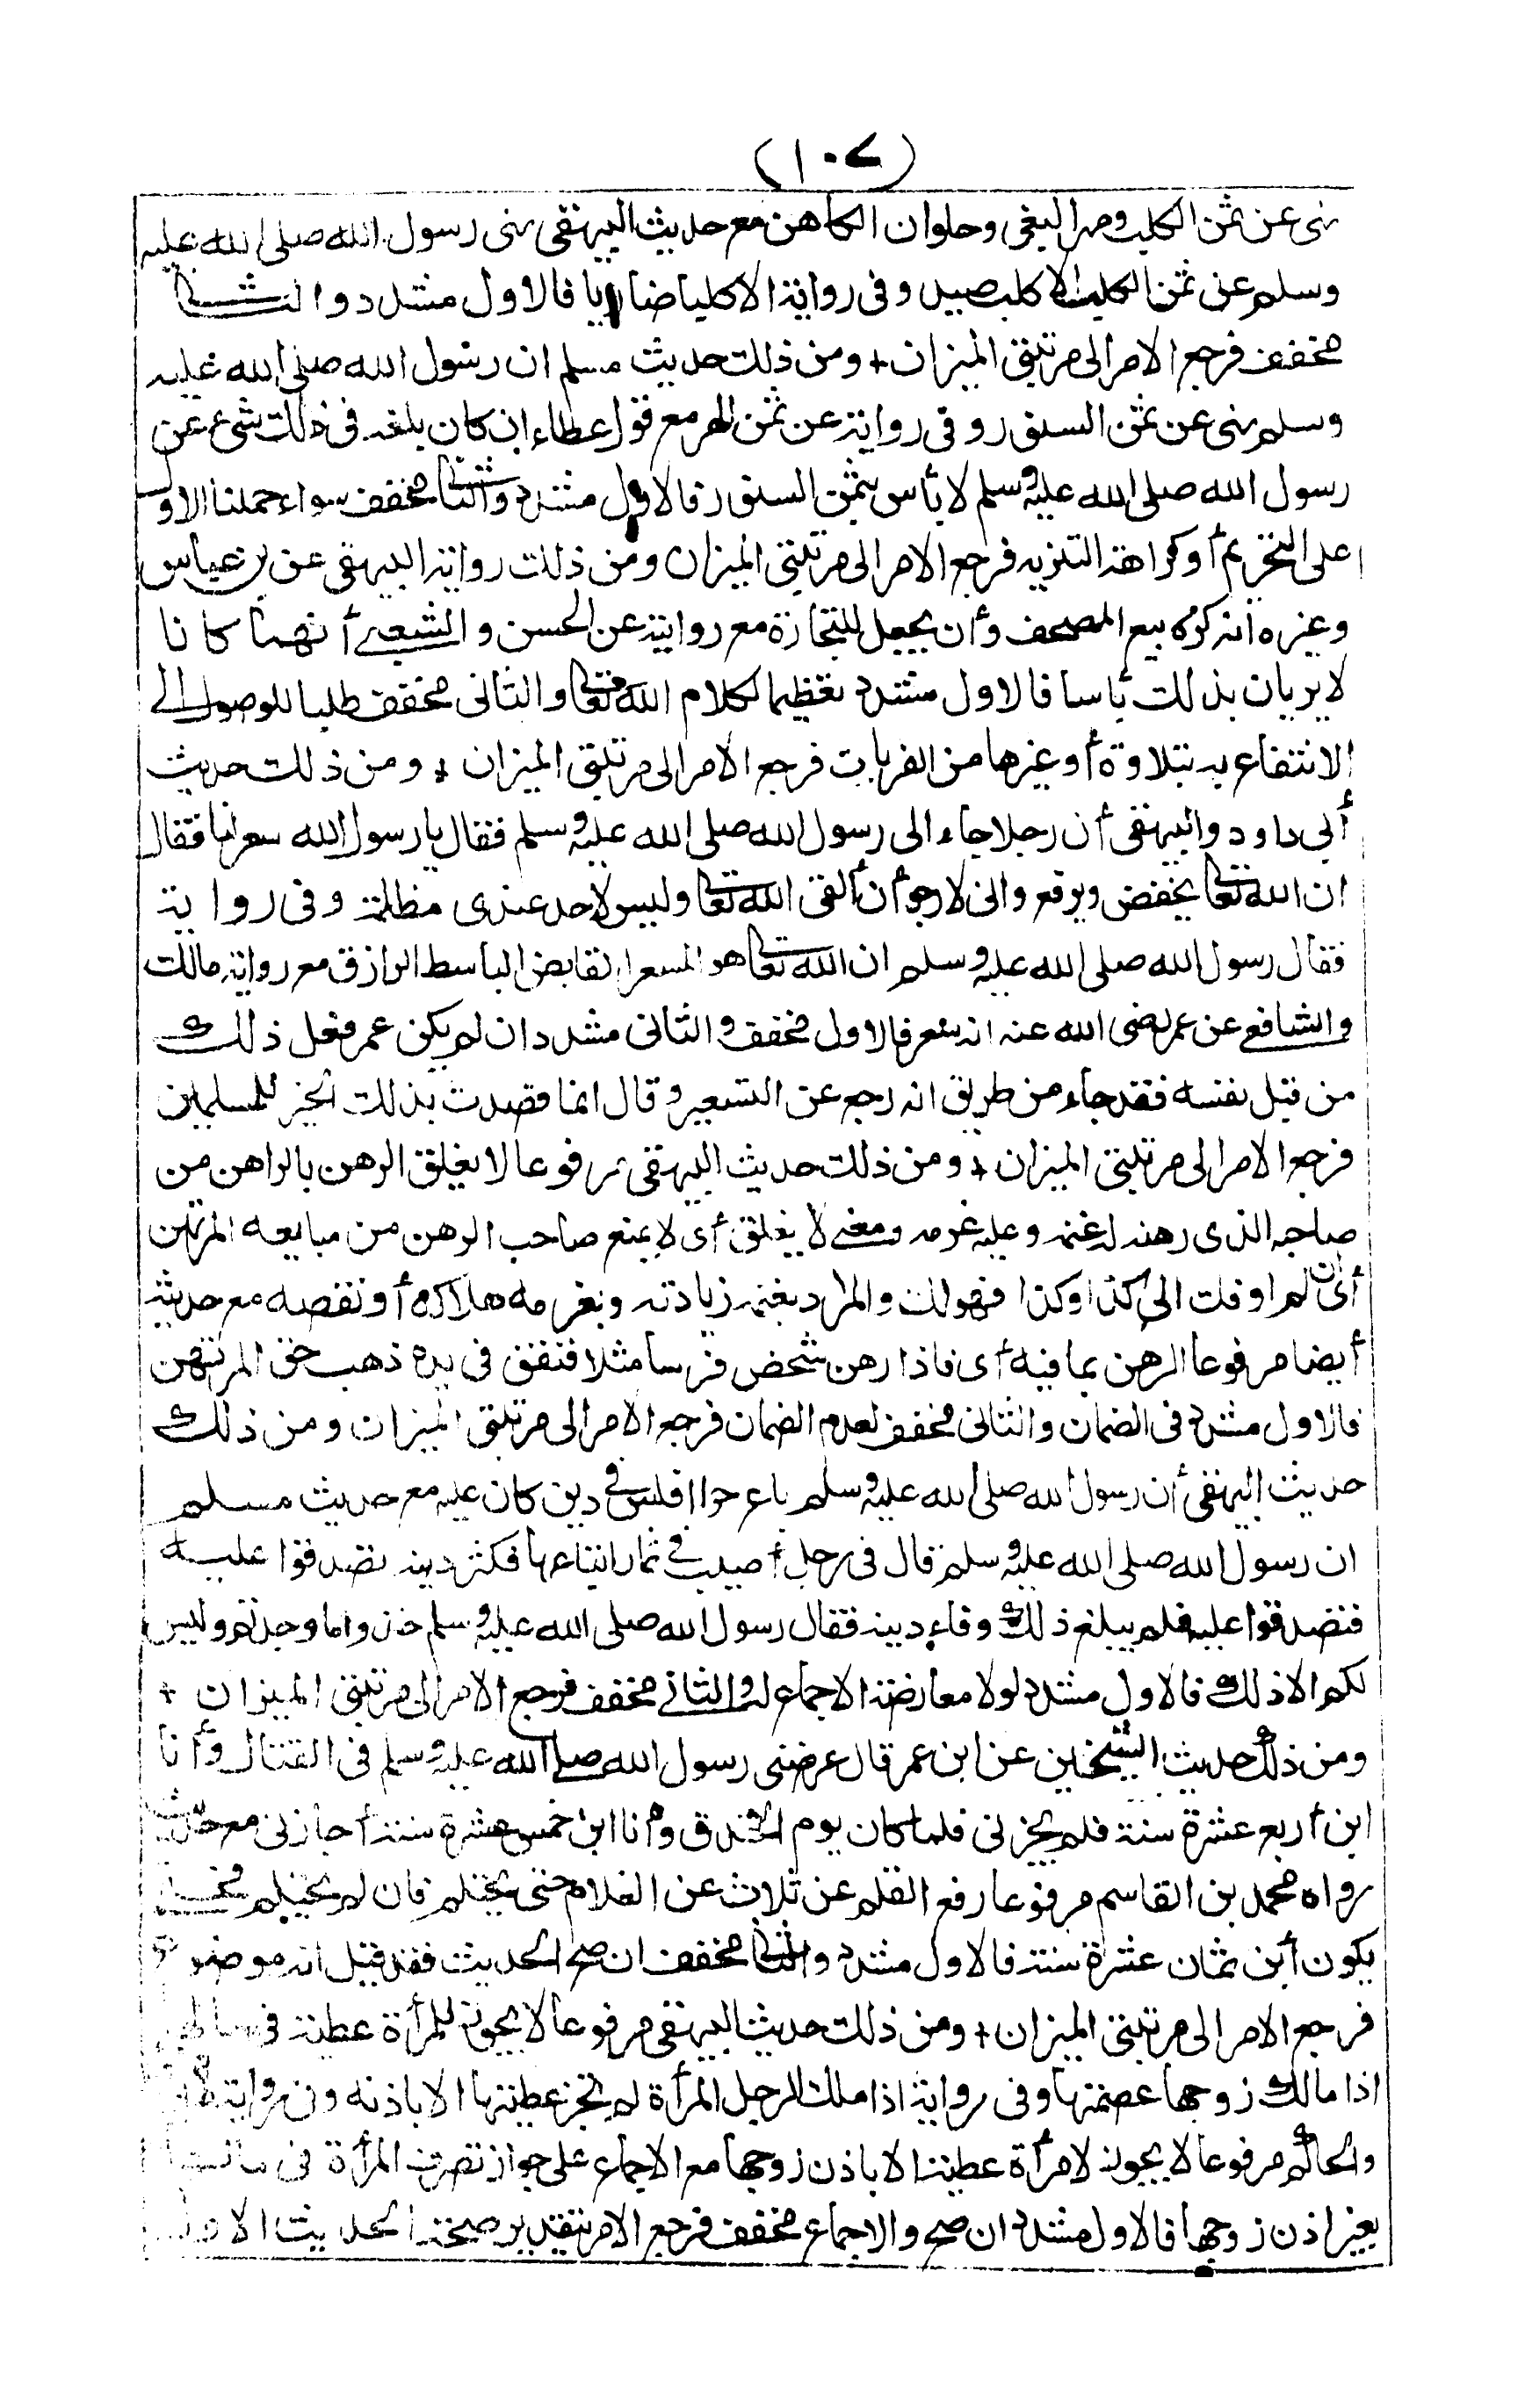 (١٠٧)
نهى عن ثمن الكلب ومهر البغى وحلوان الكاهن مع حديث البيهقى نهى رسول الله صلى الله عليه
وسلم عن ثمن الكلب الا كلب صيد وفى رواية الا كلبا ضاريا فالاول مشدد والثانى
مخفف فرجع الامر الى مرتبتى الميزان + ومن ذلك حديث مسلم ان رسول الله صلى الله عليه
وسلم نهى عن ثمن السنور وفى رواية عن ثمن الهر مع قول عطاء ان كان بلغه فى ذلك شئ عن
رسول الله صلى الله عليه وسلم لا بأس بثمن السنور فالاول مشدد والثانى مخفف سواء حملنا الاول
على التحريم أو كراهة التنزيه فرجع الامر الى مرتبتى الميزان ومن ذلك رواية البيهقى عن بن عباس
وغيره انه كره بيع المصحف وأن يجعل للتجارة مع روايته عن الحسن والشعبى أنهما كانا
لا يريان بذلك بأسا فالاول مشدد تعظيما لكلام الله تعالى والثانى مخفف طلبا للوصول الى
الانتفاع به بتلاوة أو غيرها من القربات فرجع الامر الى مرتبتى الميزان + ومن ذلك حديث
أبى داود والبيهقى أن رجلا جاء الى رسول الله صلى الله عليه وسلم فقال يا رسول الله سعر لنا فقال
ان الله تعالى يخفض ويرفع وانى لارجو أن ألقى الله تعالى وليس لاحد عندى مظلمة وفى رواية
فقال رسول الله صلى الله عليه وسلم ان الله تعالى هو المسعر القابض الباسط الرازق مع رواية مالك
والشافعى عن عمر رضى الله عنه انه سعر فالاول مخفف والثانى مشدد ان لم يكن عمر فعل ذلك
من قبل نفسه فقد جاء من طريق انه رجع عن التسعير وقال انما قصدت بذلك الخير للمسلمين
فرجع الامر الى مرتبتى الميزان + ومن ذلك حديث البيهقى مرفوعا لا يغلق الرهن بالراهن من
صاحبه الذى رهنه له غنمه وعليه غرمه ومعنى لا يغلق أى لا يمنع صاحب الرهن من مبايعه المرتهن
أى ان لم اوفك الى كذا وكذا فهو لك والمراد بغنمه زيادته وبغرمه هلاكه أو نقصه مع حديثه
أيضا مرفوعا الرهن بما فيه أى فاذا رهن شخص فرسا مثلا فنفق فى يده ذهب حق المرتهن
فالاول مشدد فى الضمان والثانى مخفف لعدم الضمان فرجع الامر الى مرتبتى الميزان ومن ذلك
حديث البيهقى أن رسول الله صلى الله عليه وسلم باع حرا افلس فى دين كان عليه مع حديث مسلم
ان رسول الله صلى الله عليه وسلم قال فى رجل أصيب فى ثمار ابتاعها فكثر دينه تصدقوا عليه
فتصدقوا عليه فلم يبلغ ذلك وفاء دينه فقال رسول الله صلى الله عليه وسلم خذوا ما وجدتم وليس
لكم الا ذلك فالاول مشدد لولا معارضة الاجماع له والثانى مخفف فرجع الامر الى مرتبتى الميزان +
ومن ذلك حديث الشيخين عن ابن عمر قال عرضنى رسول الله صلى الله عليه وسلم فى القتال وأنا
ابن أربع عشرة سنة فلم يجزنى فلما كان يوم الخندق وأنا ابن خمس عشرة سنة أجازنى مع حديث
رواه محمد بن القاسم مرفوعا رفع القلم عن ثلاث عن الغلام حتى يحتلم فان لم يحتلم فحتى
يكون أبن ثمان عشرة سنة فالاول مشدد والثانى مخفف ان صح الحديث فقد قيل انه موضوع
فرجع الامر الى مرتبتى الميزان + ومن ذلك حديث البيهقى مرفوعا لا يجوز للمرأة عطية فى مالها
اذا مالك زوجها عصمتها وفى رواية اذا ملك الرجل المرأة لم تجز عطيتها الا باذنه وفى رواية
والحاكم مرفوعا لا يجوز لامرأة عطية الا باذن زوجها مع الاجماع على جواز تصرف المرأة فى مالها
بغير اذن زوجها فالاول مشدد ان صح والاجماع مخفف فرجع الامر بتقدير صحة الحديث الاول